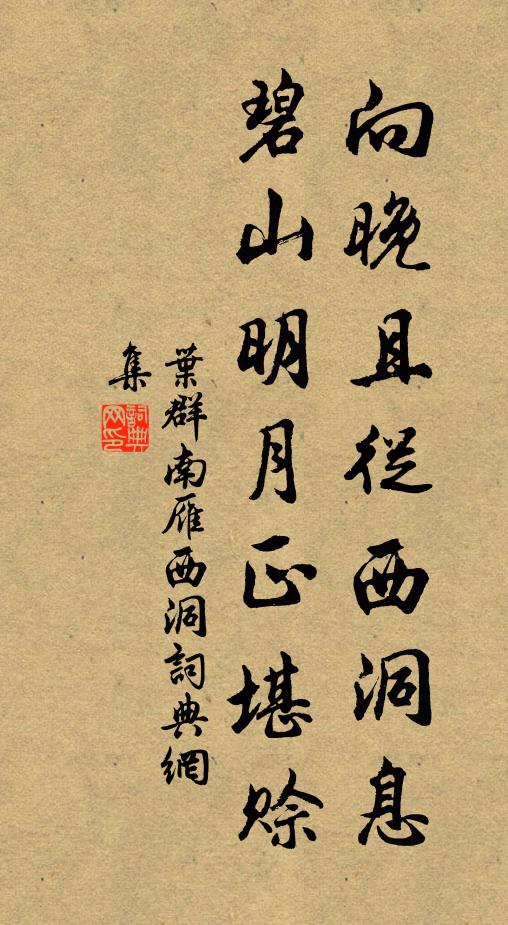 向晚且從西洞息
碧山明月正堪賒
葉群南雁西洞詞典網
集
詞典網印